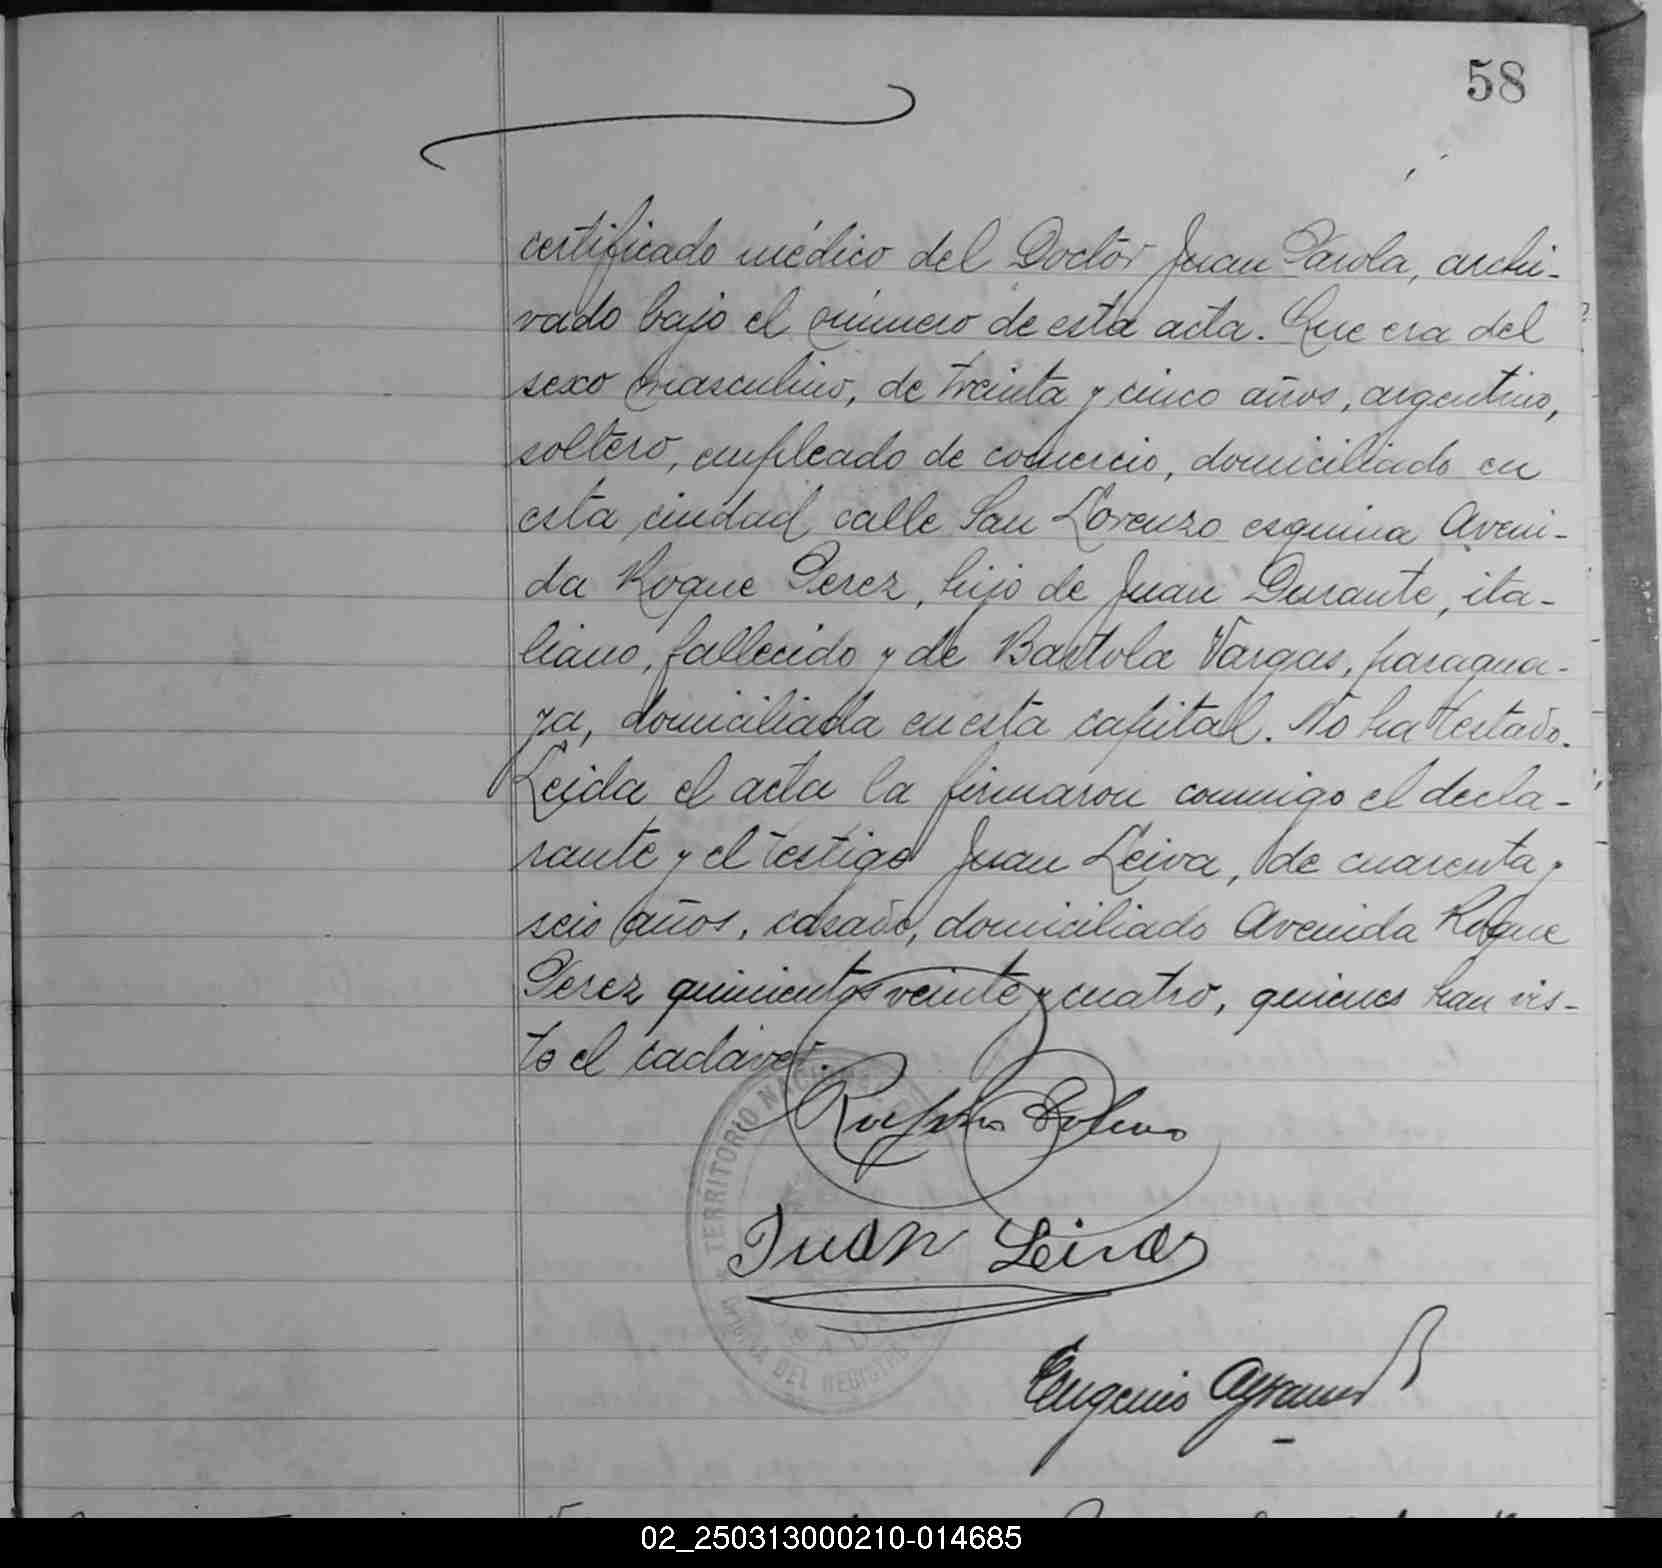 58
certificado médico del Doctor Juan Parola, archi-
vado bajo el número de esta acta. Que era del
sexo masculino, de treinta y cinco años, argentino,
soltero, empleado de comercio, domiciliado en
esta ciudad calle San Lorenzo esquina Aveni-
da Roque Perez, hijo de Juan Durante, ita-
liano, fallecido y de Bartola Vargas, paragua-
ya, domiciliada en esta capital. No ha testado.
Leida el acta la firmaron conmigo el decla-
rante y el testigo Juan Leiva, de cuarenta y
seis años, casado, domiciliado Avenida Roque
Perez quinientos veinte y cuatro, quienes han vis-
to el cadáver.
TERRITORIO
Juan Leiva
DEL REGISTRO
Eugenio
02_250313000210-014685